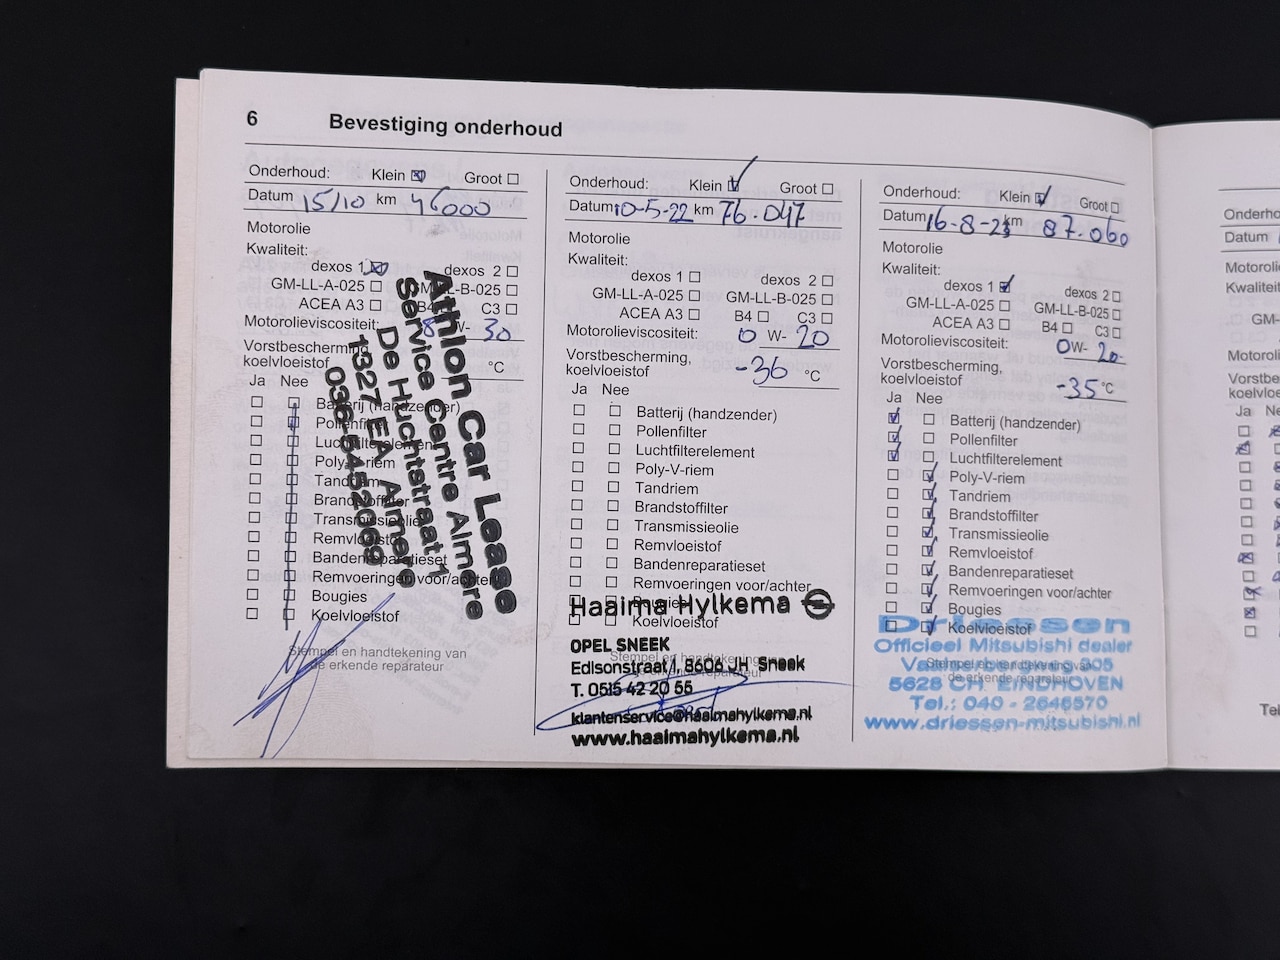 6 Bevestiging onderhoud
Onderhoud: Klein Groot
Datum 15/10 km 46000
Motorolie
Kwaliteit:
dexos 1 dexos 2
GM-LL-A-025 GM-LL-B-025
ACEA A3 B4 C3
Motorolieviscositeit: W- 30
Vorstbescherming,
koelvloeistof °C
Ja Nee
Batterij (handzender)
Pollenfilter
Luchtfilterelement
Poly-V-riem
Tandriem
Brandstoffilter
Transmissieolie
Remvloeistof
Bandenreparatieset
Remvoeringen voor/achter
Bougies
Koelvloeistof
Stempel en handtekening van
de erkende reparateur
Athlon Car Lease
Service Centre Almere
De Huchtstraat 1
1327 EA Almere
036-5452069
Onderhoud: Klein Groot
Datum 10-5-22 km 76.047
Motorolie
Kwaliteit:
dexos 1 dexos 2
GM-LL-A-025 GM-LL-B-025
ACEA A3 B4 C3
Motorolieviscositeit: 0 W- 20
Vorstbescherming,
koelvloeistof -36 °C
Ja Nee
Batterij (handzender)
Pollenfilter
Luchtfilterelement
Poly-V-riem
Tandriem
Brandstoffilter
Transmissieolie
Remvloeistof
Bandenreparatieset
Remvoeringen voor/achter
Bougies
Koelvloeistof
Stempel en handtekening van
de erkende reparateur
Haaima Hylkema
OPEL SNEEK
Edisonstraat 1, 8606 JH Sneek
T. 0515 42 20 55
klantenservice@haaimahylkema.nl
www.haaimahylkema.nl
Onderhoud: Klein Groot
Datum 16-8-23 km 87.060
Motorolie
Kwaliteit:
dexos 1 dexos 2
GM-LL-A-025 GM-LL-B-025
ACEA A3 B4 C3
Motorolieviscositeit: 0W- 20-
Vorstbescherming,
koelvloeistof -35 °C
Ja Nee
Batterij (handzender)
Pollenfilter
Luchtfilterelement
Poly-V-riem
Tandriem
Brandstoffilter
Transmissieolie
Remvloeistof
Bandenreparatieset
Remvoeringen voor/achter
Bougies
Koelvloeistof
Stempel en handtekening van
de erkende reparateur
Driessen
Officieel Mitsubishi dealer
5628 CH EINDHOVEN
Tel.: 040 - 2645570
www.driessen-mitsubishi.nl
Datum
Ja Nee